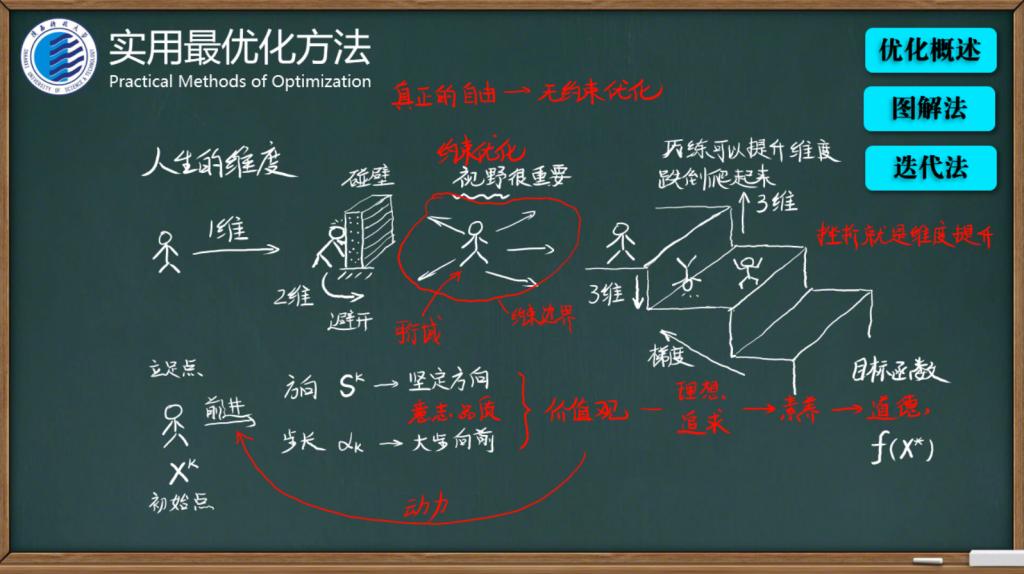 实用最优化方法
Practical Methods of Optimization
优化概述
图解法
迭代法
真正的自由→无约束优化
人生的维度
碰壁
约束优化
视野很重要
历练可以提升维度
跌倒爬起来
3维
挫折就是维度提升
1维
2维
避开
可行域
约束边界
3维
梯度
目标函数
立足点
前进
X^K
初始点
方向 S^K → 坚定方向
意志品质
步长 α_K → 大步向前
价值观 — 理想, 追求 → 素养 → 道德,
f(X*)
动力